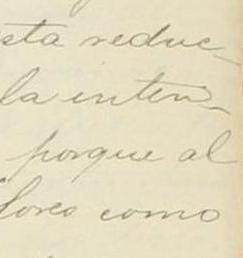 sta reduc-
la inten-
porque al
como